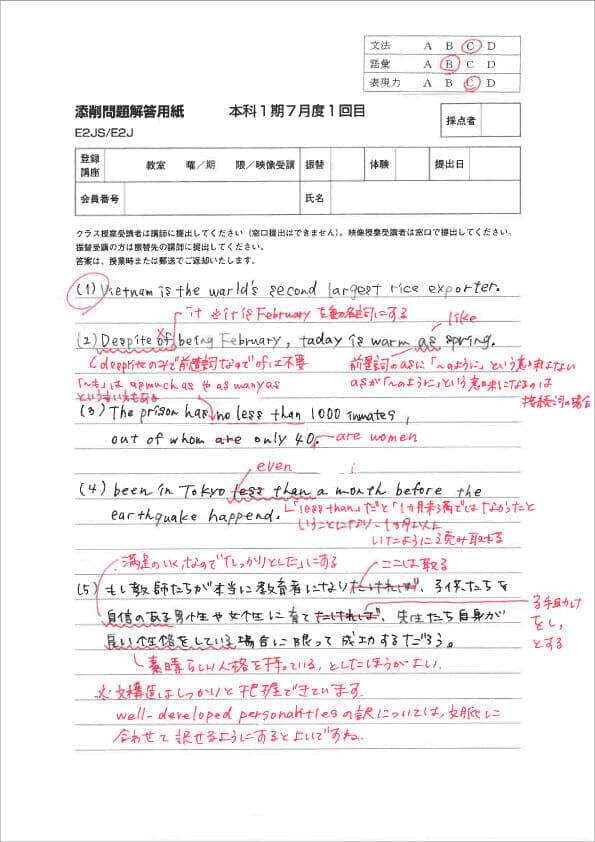 文法 A B C D
語彙 A B C D
表現力 A B C D
添削問題解答用紙 本科1期7月度1回目
E2JS/E2J
採点者
登録講座 教室 曜/期 限/映像受講 振替 体験 提出日
会員番号 氏名
クラス授業受講者は講師に提出してください(窓口提出はできません)。映像授業受講者は窓口で提出してください。
振替受講の方は振替先の講師に提出してください。
答案は、授業時または郵送でご返却いたします。
(1) Vietnam is the world's second largest rice exporter.
it ※it is Februaryを動名詞にする
like
(2) Despite of being February, taday is warm as spring.
(despiteのみで前置詞なのでofは不要
前置詞のasに「〜のように」という意味はない
asが「〜のように」という意味になるのは
接続詞の場合
「〜も」は as much as や as many as
という言い方もある
(3) The prison has no less than 1000 inmates,
out of whom are only 40.
are women
even
(4) been in Tokyo less than a month before the
earthquake happend.
「less than」だと「1か月未満ではなかったと
いうことになり、1か月以上
いたように読み取れる
満足のいく、なので「しっかりとした」にする
ここは取る
(5) もし教師たちが本当に教育者になりたければ、子供たちを
自信のある男性や女性に育てたければ、先生たち自身が
良い性格をしている場合に限って成功するだろう。
る手助けをし,とする
素晴らしい人格を持っている,としたほうがよい。
※文構造はしっかりと把握できています。
well-developed personalitiesの訳については、文脈に
合わせて訳せるようにするとよいですね。